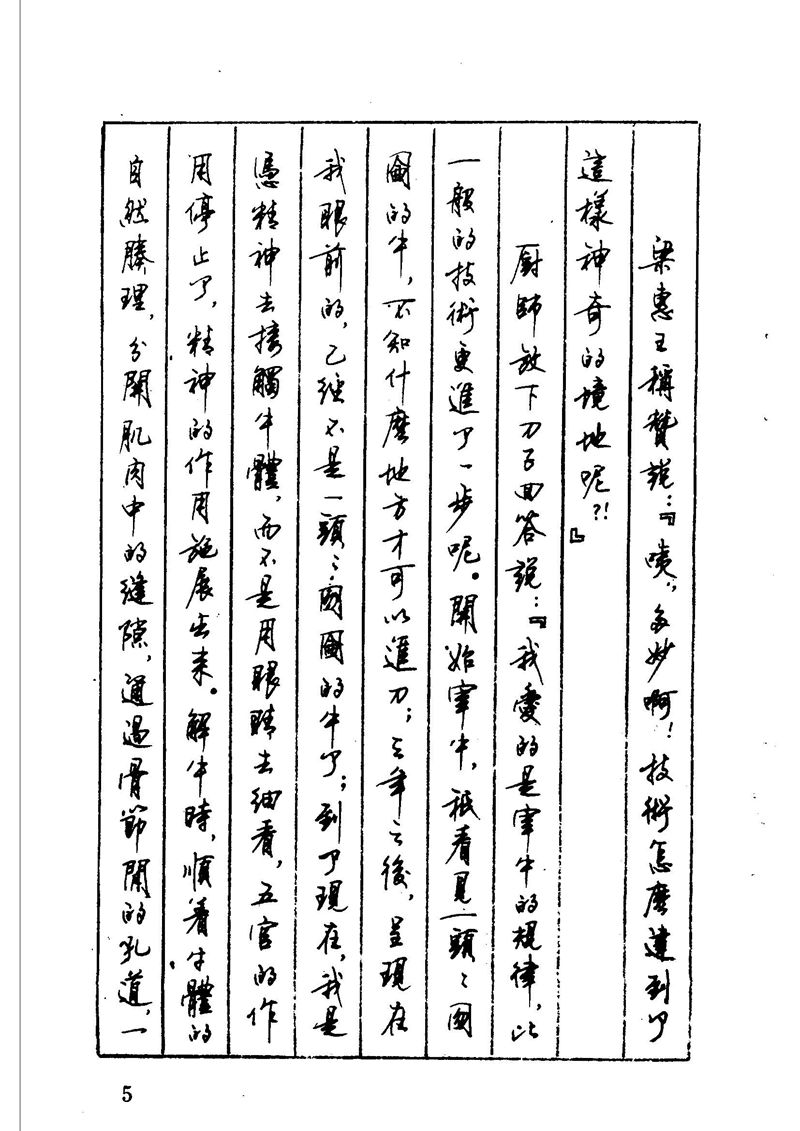 梁惠王稱贊說：『嘆，多妙啊！技術怎麽達到了
這樣神奇的境地呢？！』
厨師放下刀子回答說：『我愛的是宰牛的規律，比
一般的技術更進了一步呢。開始宰牛，祇看見一頭々囫
圇的牛，不知什麽地方才可以進刀；三年之後，呈現在
我眼前的，已經不是一頭々囫圇的牛了；到了現在，我是
憑精神去接觸牛體，而不是用眼睛去細看，五官的作
用停止了，精神的作用施展出来。解牛時，順着牛體的
自然腠理，分開肌肉中的縫隙，通過骨節間的孔道，一
5